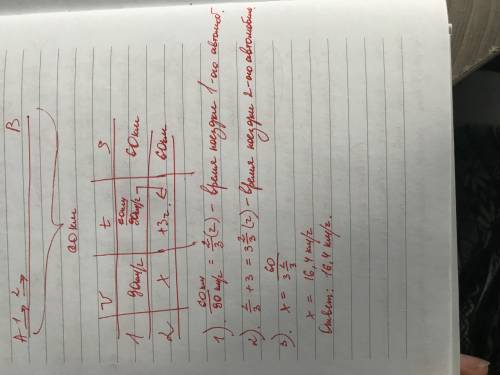 A 1→ 2→ B
60 км
V t S
1 90км/ч 60км/90км/ч 60км
2 x +3ч. 60км
1). 60км/90 км/ч = 2/3 (ч) - время поездки 1-ого автомоб.
2). 2/3 + 3 = 3 2/3 (ч) - время поездки 2-ого автомобиля.
3). x = 60/3 2/3
x = 16,4 км/ч
Ответ: 16,4 км/ч